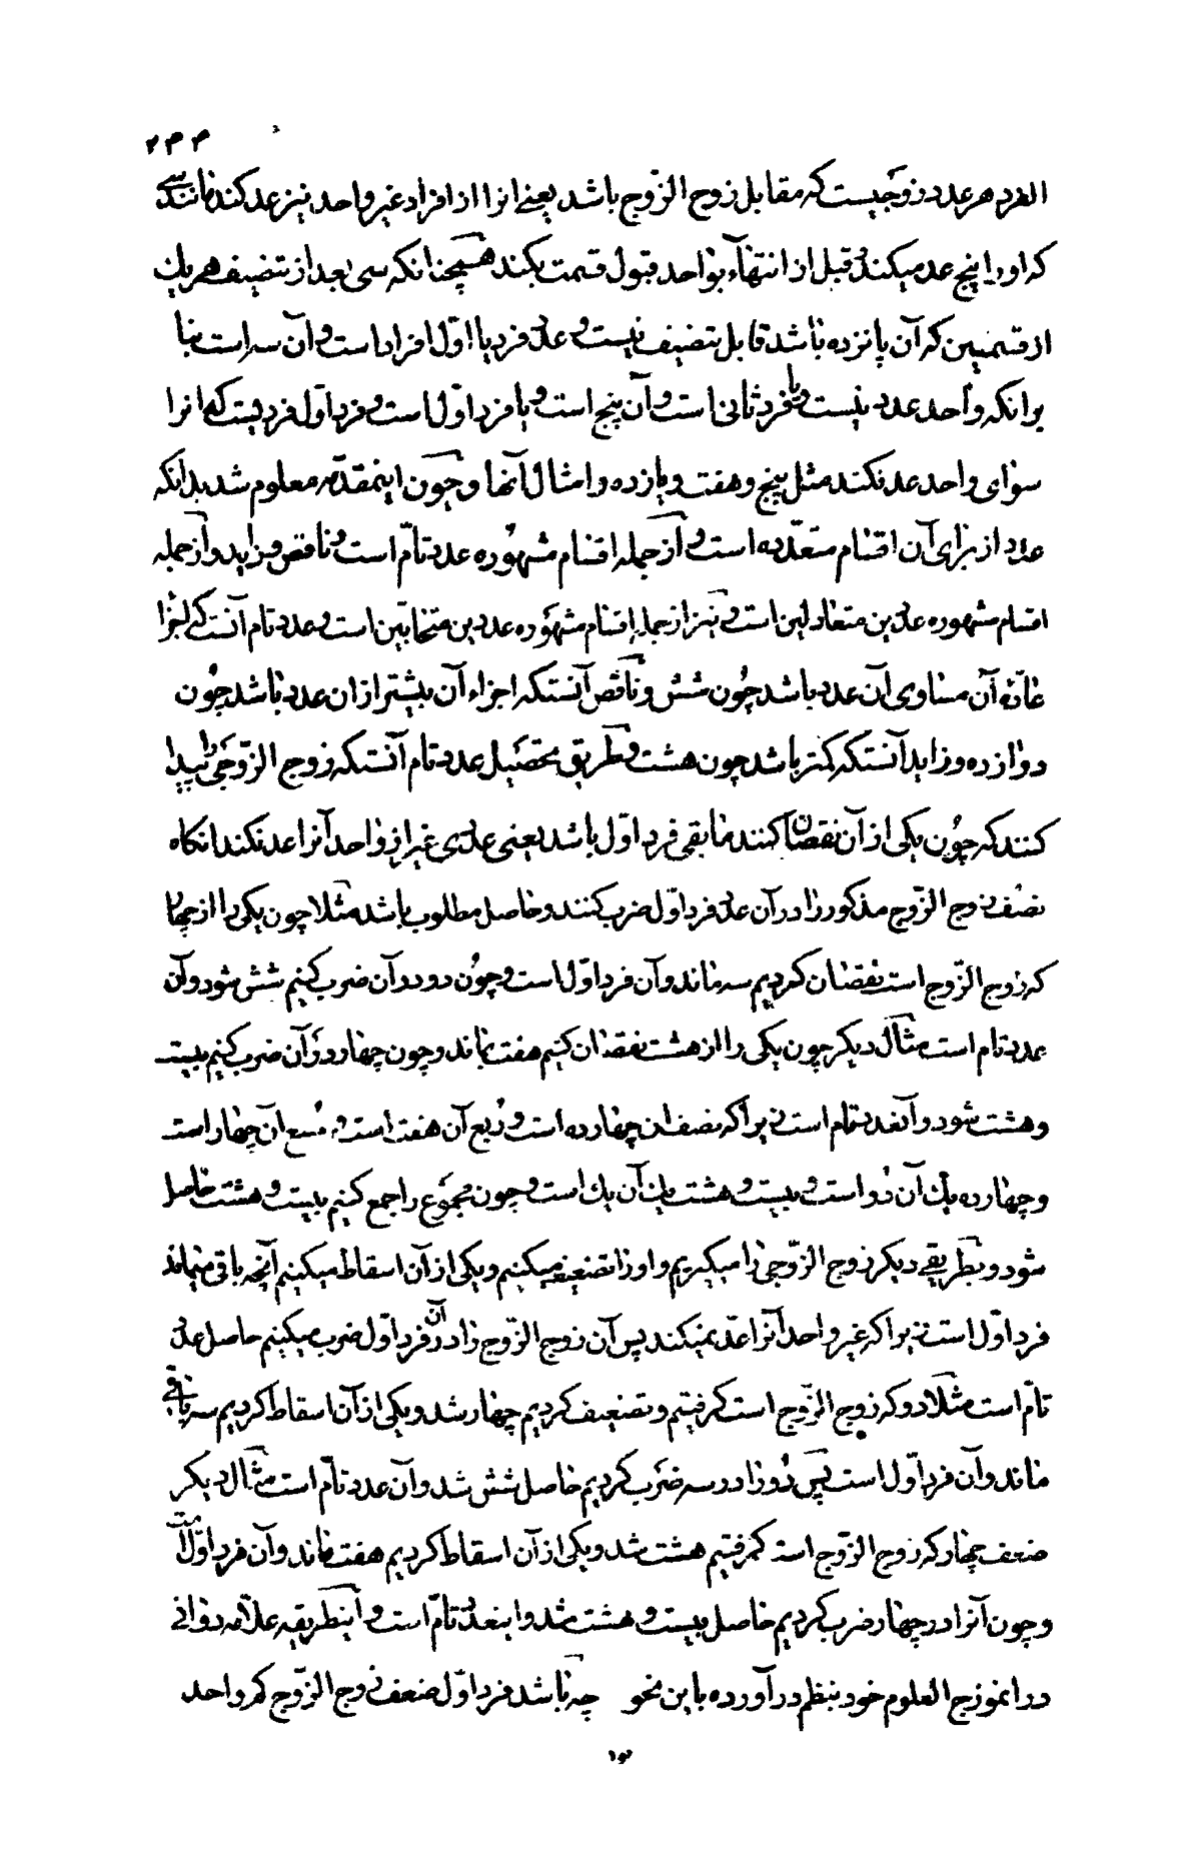 ۲۳۳
الفرد هر عدد زوجیست که مقابل زوج الزّوج باشد یعنی انرا از افراد غیر واحد نیز عد کند مانند سی
که اورا پنج عد میکند و قبل از انتهآء بواحد قبول قسمت بکند همچنانکه سی بعد از تنصیف هر یک
از قسمین که آن پانزده باشد قابل تنصیف نیست و عدد فرد یا اوّل افراد است و آن سه است بنا
برانکه واحد عدد نیست و یا فرد ثانی است و آن پنج است و یا فرد اوّل است و فرد اوّل فردیست که انرا
سوای واحد عد نکند مثل پنج و هفت و یازده و امثال آنها و چون اینمقدّمه معلوم شد بدانکه
عدد از برای آن اقسام متعدّده است و از جمله اقسام مشهوره عدد تامّ است و ناقص و زاید و از جمله
اقسام مشهوره عددین متعادلین است و نیز از جمله اقسام مشهوره عددین متحابّین است و عدد تام آنست که اجزا
عادّهٔ آن مساوی آن عدد باشد چون شش و ناقص آنستکه اجزاء آن بیشتر از ان عدد باشد چون
دوازده و زاید آنستکه کمتر باشد چون هشت و طریق تحصیل عدد تام آنستکه زوج الزّوجی را پیدا
کنند که چون یکی از آن نقصان کنند مابقی فرد اوّل باشد یعنی عددی غیر از واحد آنرا عد نکند انکاه
نصف زوج الزّوج مذکور را در آن عدد فرد اوّل ضرب کنند و حاصل مطلوب باشد مثلا چون یکی را از چهار
که زوج الزّوج است نقصان کردیم سه ماند و آن فرد اوّل است و چون دو در آن ضرب کنیم شش شود و آن
عدد تام است مثال دیکر چون یکی را از هشت نقصان کنیم هفت بماند و چون چهار در آن ضرب کنیم بیست
و هشت شود و آنعدد تمام است زیرا که نصف ان چهارده است و ربع آن هفت است و سُبع آن چهار است
و چهارده یک آن دو است و بیست و هشت یک آن یک است و چون مجموع را جمع کنیم بیست و هشت حاصل
شود و بطریقی دیکر زوج الزّوجی را میکیریم و اورا تضعیف میکنیم و یکی از آن اسقاط میکنیم آنچه باقی میماند
فرد اوّل است زیرا که غیر واحد آنرا عدّ نمیکند پس آن زوج الزّوج را در آن فرد اوّل ضرب میکنیم حاصل عدد
تامّ است مثلا دو که زوج الزّوج است کرفتیم و تضعیف کردیم چهار شد و یکی از آن اسقاط کردیم سه باقی
ماند و آن فرد اوّل است پس دو را در سه ضرب کردیم حاصل شش شد و آن عدد تامّ است مثال دیکر
ضعف چهار که زوج الزّوج است کرفتیم هشت شد و یکی از آن اسقاط کردیم هفت ماند و آن فرد اوّل است
و چون آنرا در چهار ضرب کردیم حاصل بیست و هشت شد و اینعدد تامّ است و اینطریقه علّامه دوانی
در انموزج العلوم خود بنظم در آورده باین نحو چه باشد فرد اوّل ضعف زوج الزّوج کم واحد